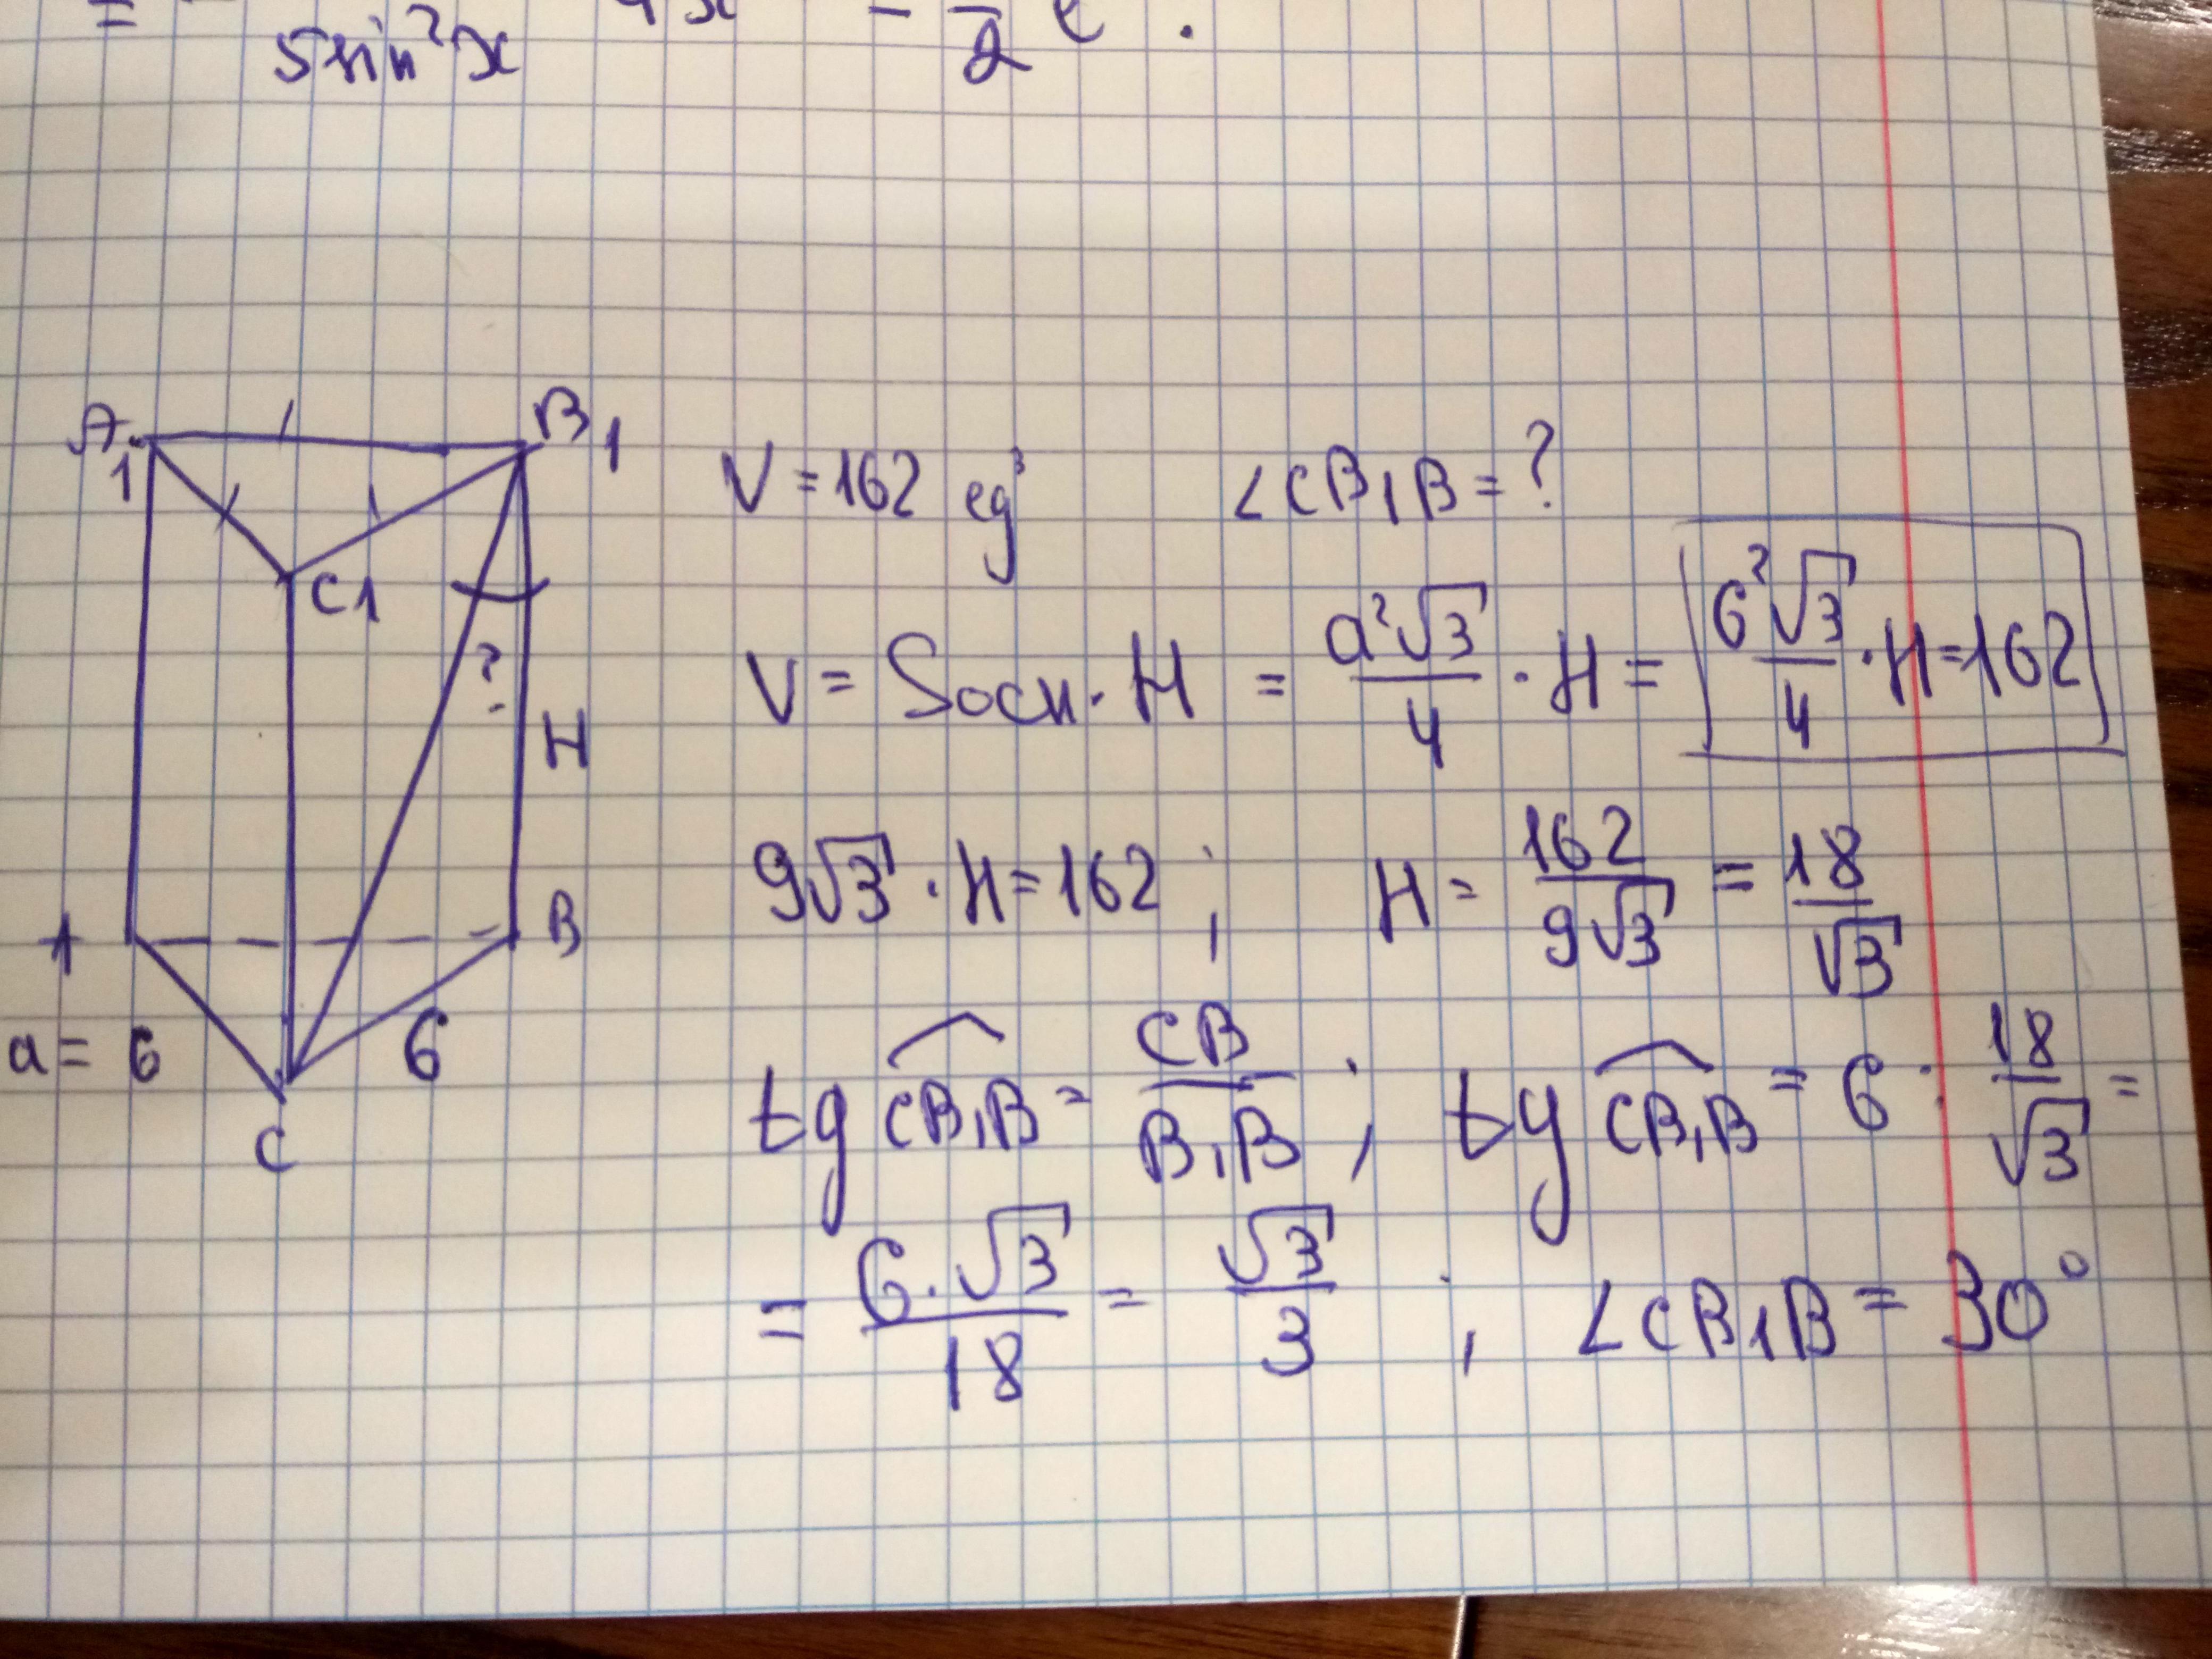 =
sin²x
- —/2
A1
B1
C1
?
H
A
B
a = 6
6
C
V = 162 ед³ ∠CB1B = ?
V = Sосн · H = a²√3/4 · H = 6²√3/4 · H = 162
9√3 · H = 162 ; H = 162/9√3 = 18/√3
tg CB1B = CB/B1B ; tg CB1B = 6 : 18/√3 =
= 6·√3/18 = √3/3 ; ∠CB1B = 30°